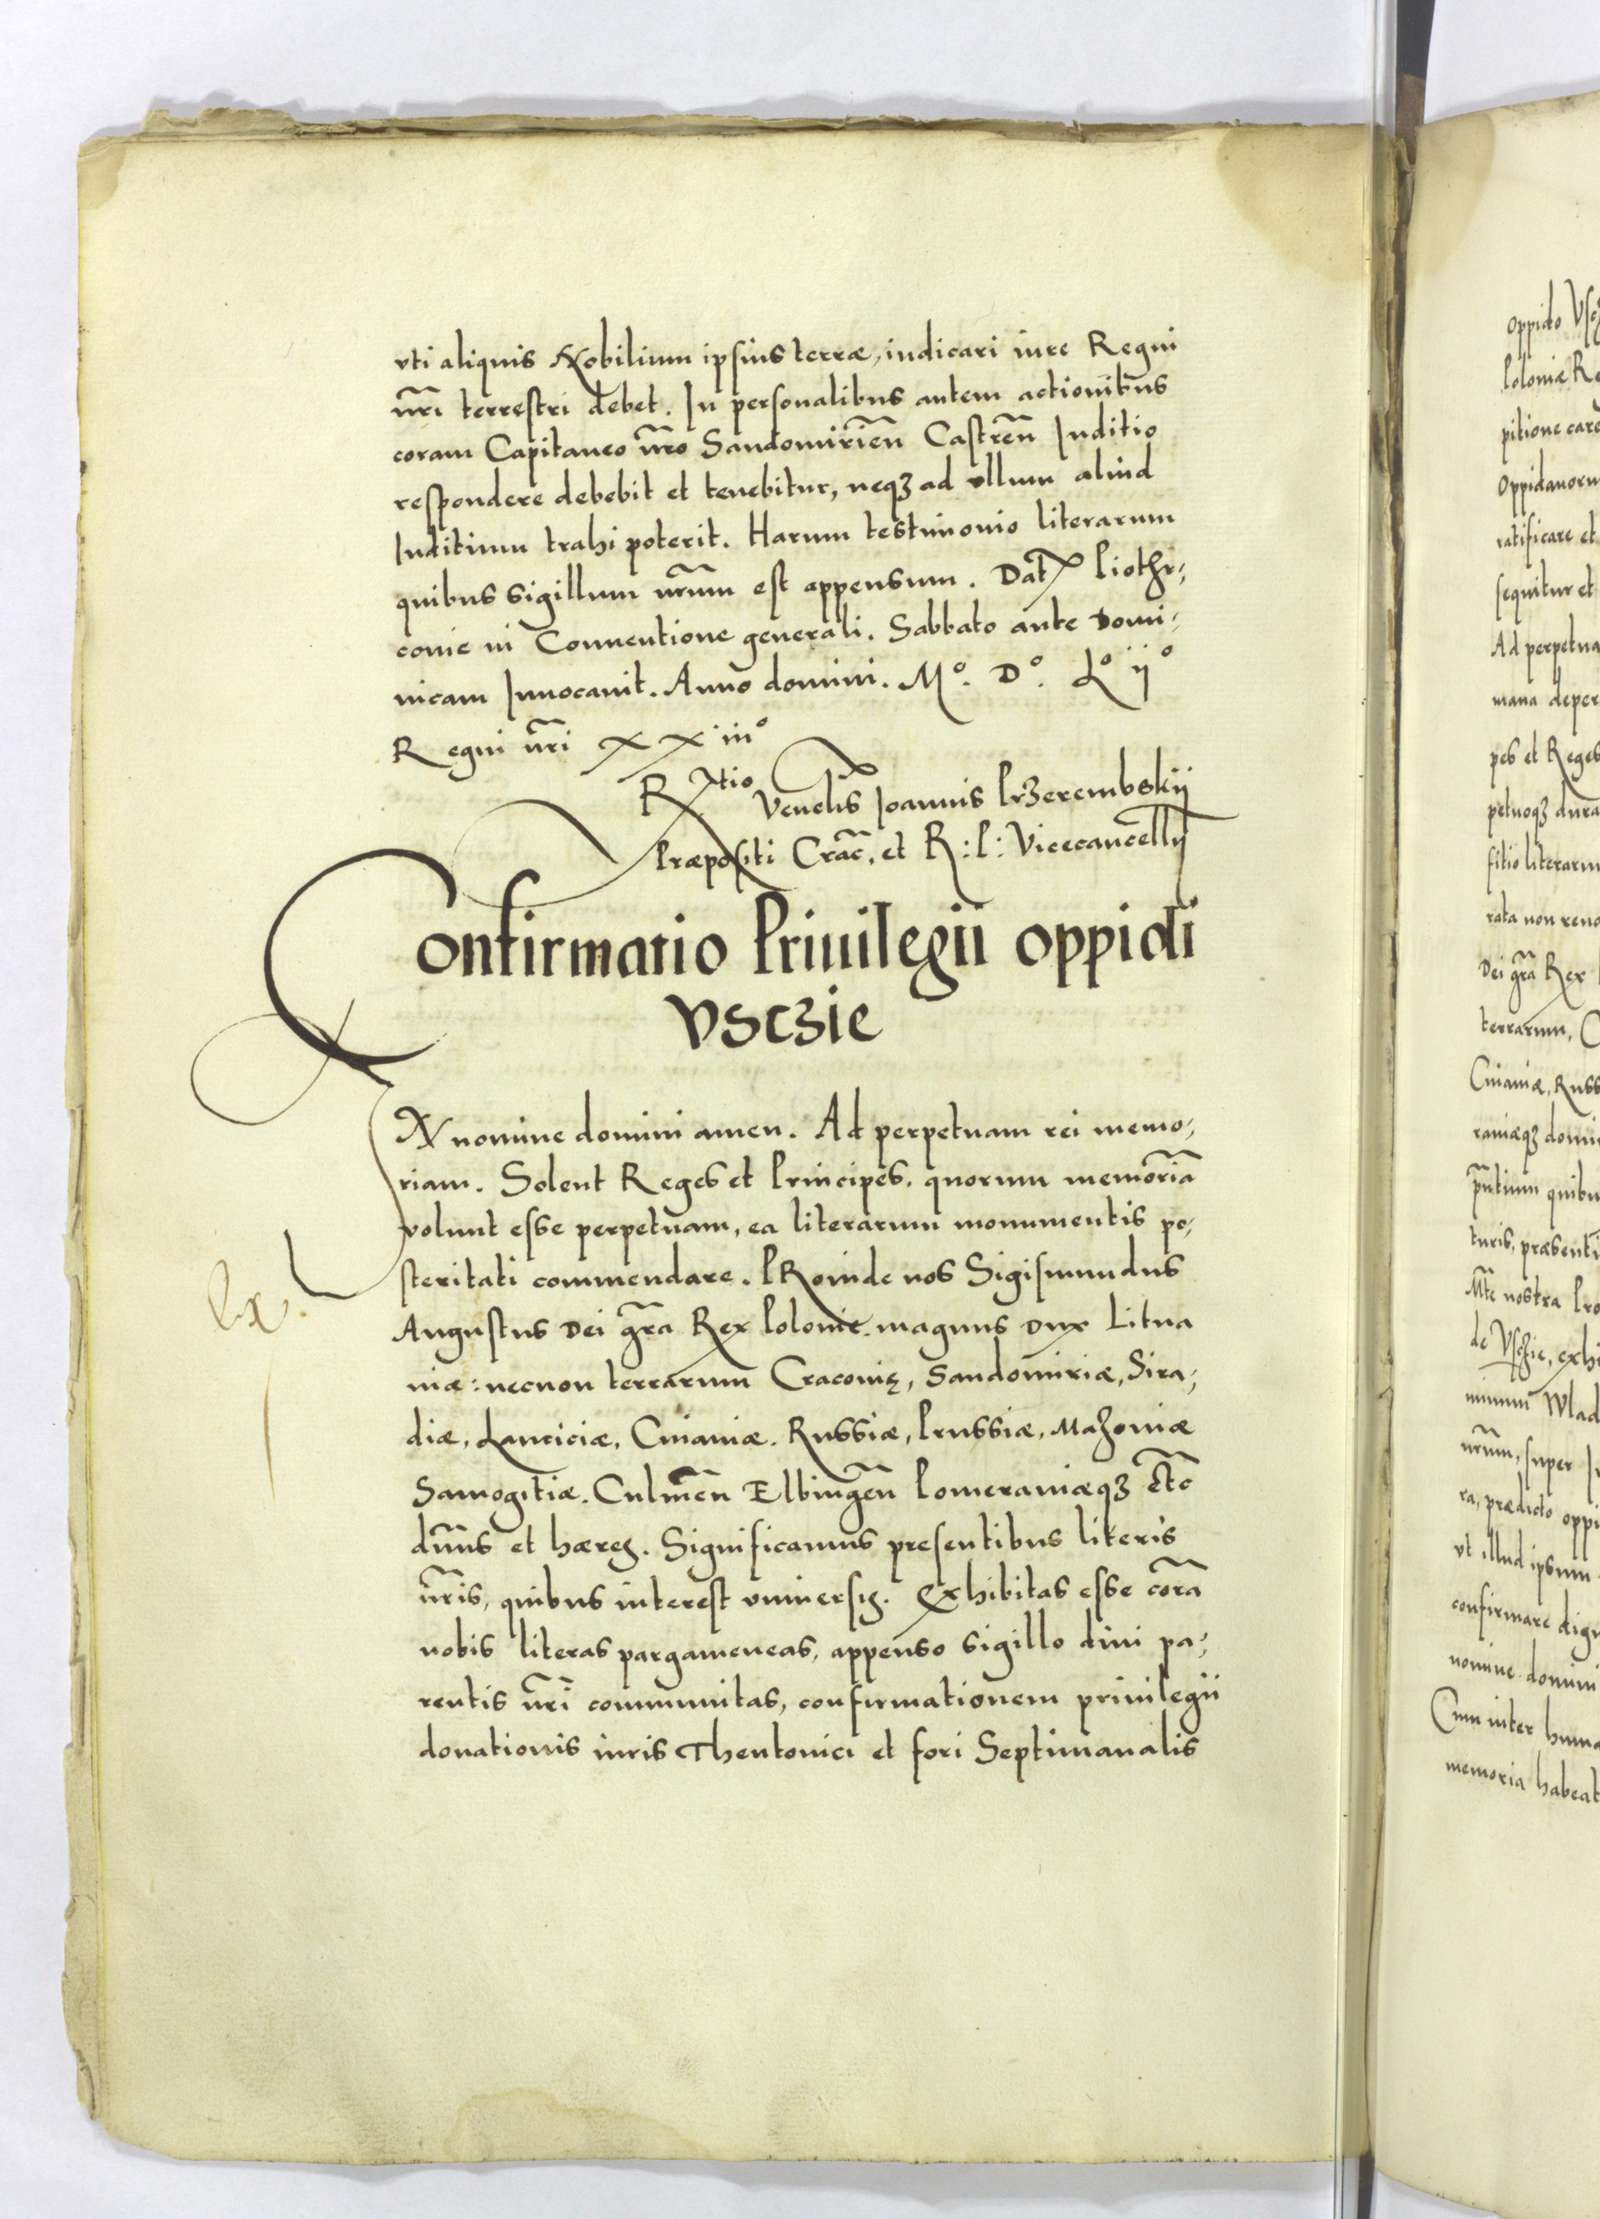 vti aliquis Nobilium ipsius terræ, iudicari iure Regni
nr̃i terrestri debet. In personalibus autem actionibus
coram Capitaneo nr̃o Sandomirien̄ Castren̄ Iuditio
respondere debebit et tenebitur, neqꝫ ad vllum aliud
Iuditium trahi poterit. Harum testimonio literarum
quibus sigillum nr̃um est appensum. Dat̃ Piothr-
couie in Conuentione generali. Sabbato ante Domi-
nicam Inuocauit. Anno domini. Mº. Dº. Lº ijº
Regni nr̃i XXiiiº
R̃tio Venel̃is Ioannis Prꝫerembskij
Præpositi Crac̃, et R: P: Vicecancellij
Confirmatio Priuilegii oppidi
Vscꝫie
IN nomine domini amen. Ad perpetuam rei memo-
riam. Solent Reges et Principes, quorum memoriã
volunt esse perpetuam, ea literarum monumentis po-
steritati commendare. PRoinde nos Sigismundus
Augustus Dei gr̃a Rex Polonie. magnus Dux Litua
niæ: necnon terrarum Cracouię, Sandomiriæ, Sira-
diæ, Lanciciæ, Cuiauiæ. Russiæ, Prussiæ, Mazouiæ
Samogitiæ. Culmen̄ Elbingen̄ Pomeraniæqꝫ etc̃
dn̄us et hæres. Significamus presentibus literis
nr̃is, quibus interest vniuersis. Exhibitas esse corã
nobis literas pargameneas, appenso sigillo diui pa-
rentis nr̃i communitas, confirmationem priuilegii
donationis iuris Theutonici et fori Septimanalis
Ex.
oppido
Poloniæ
pitione
ratificare et
sequitur et
Ad perpetua
mana
pes et Reges
petuoqꝫ dura
sitio literarum
rata non reuo
Dei gr̃a Rex
terrarum,
Cuiauiæ, Russ
raniæqꝫ domi
turis, præsenti
nostra
de Vscꝫie, exhi
Wlad
nr̃um, super
ra, prædicto oppi
vt illud ipsum
confirmare dign
nomine domini
Cum inter huma
memoria habeat